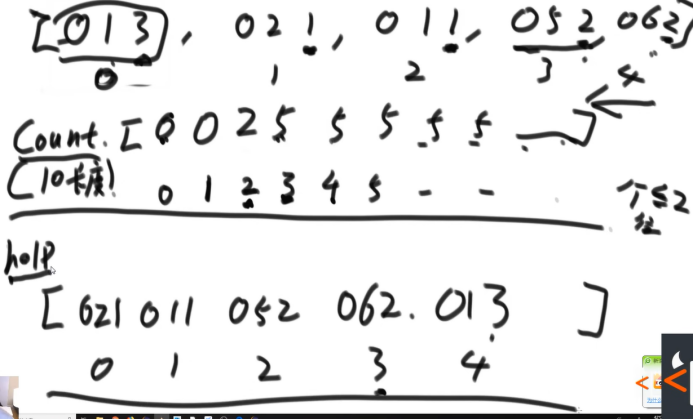 [013, 021, 011, 052 062]
0 1 2 3 4
Count. [0 0 2 5 5 5 5 5 ]
(10长度) 0 1 2 3 4 5 - -
个≤2
help
[021 011 052 062. 013 ]
0 1 2 3 4